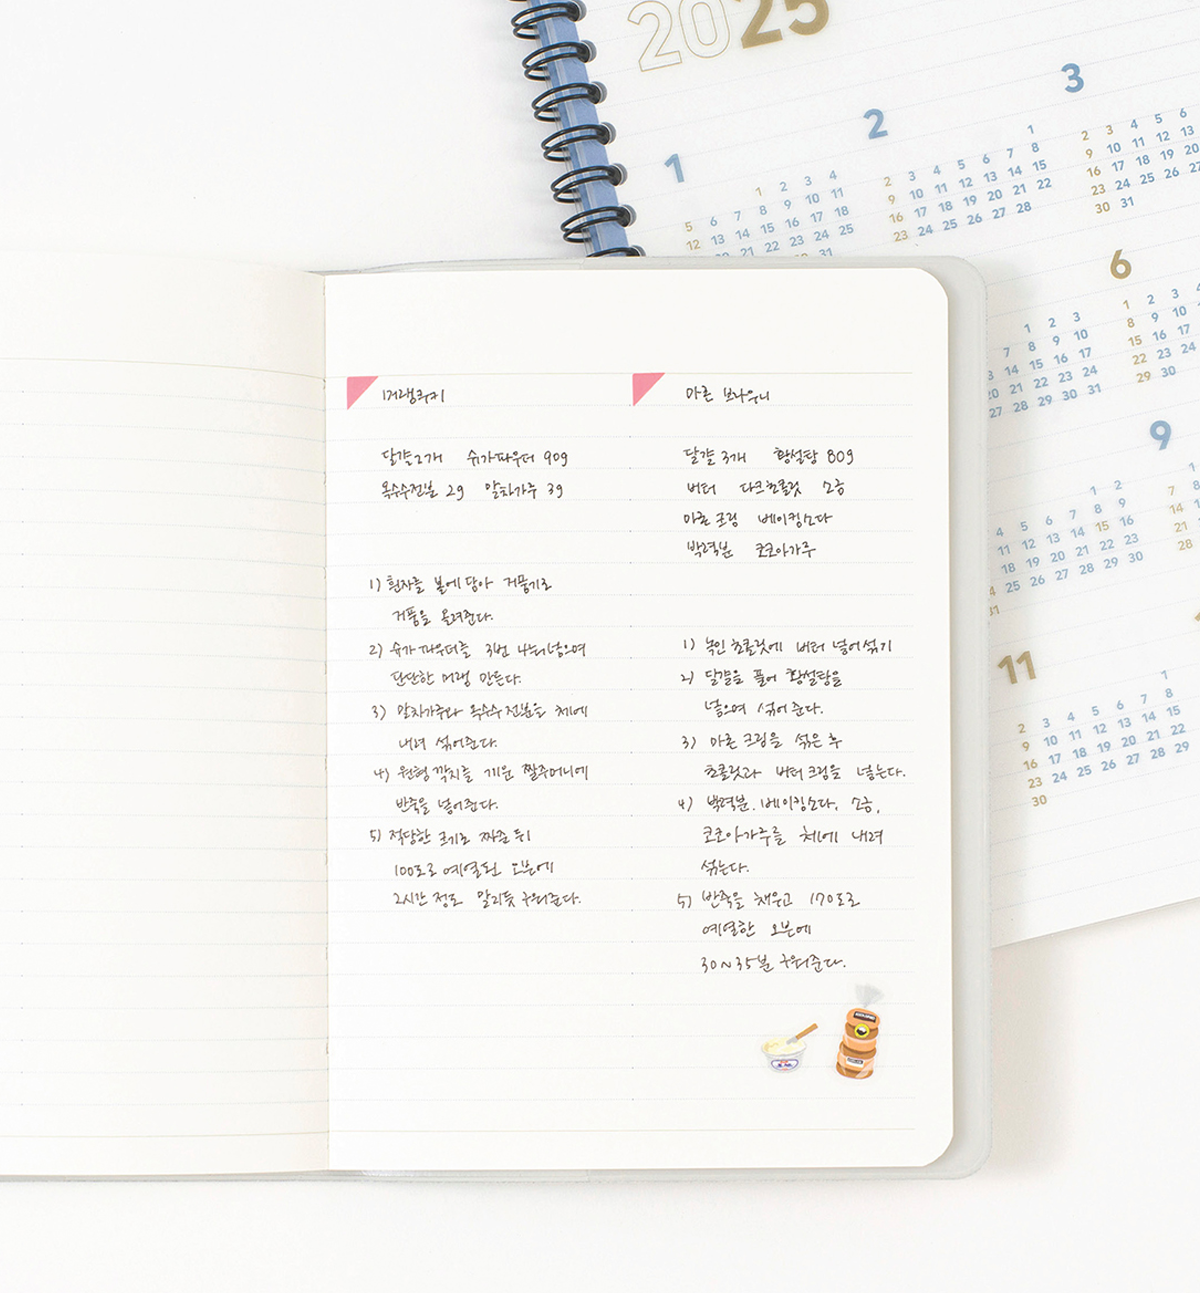 2025
1
1 2 3 4
5 6 7 8 9 10 11
12 13 14 15 16 17 18
22 23 24 25
31
2
1
2 3 4 5 6 7 8
9 10 11 12 13 14 15
16 17 18 19 20 21 22
23 24 25 26 27 28
3
2 3 4 5 6
9 10 11 12 13
16 17 18 19 20
23 24 25 26 27
30 31
1 2 3
7 8 9 10
13 14 15 16 17
20 21 22 23 24
27 28 29 30 31
6
1 2 3
8 9 10
15 16 17
22 23 24
29 30
1 2
4 5 6 7 8 9
11 12 13 14 15 16
18 19 20 21 22 23
25 26 27 28 29 30
31
9
7 8
14
21
28
11
1
2 3 4 5 6 7 8
9 10 11 12 13 14 15
16 17 18 19 20 21 22
23 24 25 26 27 28 29
30
머랭쿠키
달걀2개 슈가파우더 90g
옥수수전분 2g 말차가루 3g
1) 흰자를 볼에 담아 거품기로
거품을 올려준다.
2) 슈가파우더를 3번 나눠넣으며
단단한 머랭 만든다.
3) 말차가루와 옥수수전분을 체에
내려 섞어준다.
4) 원형깍지를 끼운 짤주머니에
반죽을 넣어준다.
5) 적당한 크기로 짜준 뒤
100도로 예열된 오븐에
2시간 정도 말리듯 구워준다.
마론 브라우니
달걀 3개 황설탕 80g
버터 다크초콜릿 소금
마론크림 베이킹소다
박력분 코코아가루
1) 녹인 초콜릿에 버터 넣어섞기
2) 달걀을 풀어 황설탕을
넣으며 섞어준다.
3) 마론크림을 섞은 후
초콜릿과 버터크림을 넣는다.
4) 박력분, 베이킹소다, 소금,
코코아가루를 체에 내려
섞는다.
5) 반죽을 채우고 170도로
예열한 오븐에
30~35분 구워준다.